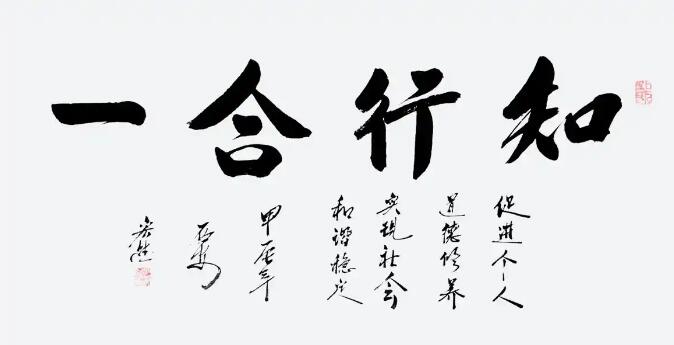 知行合一
促進个人
道德修养
实现社会
和谐稳定
甲辰年